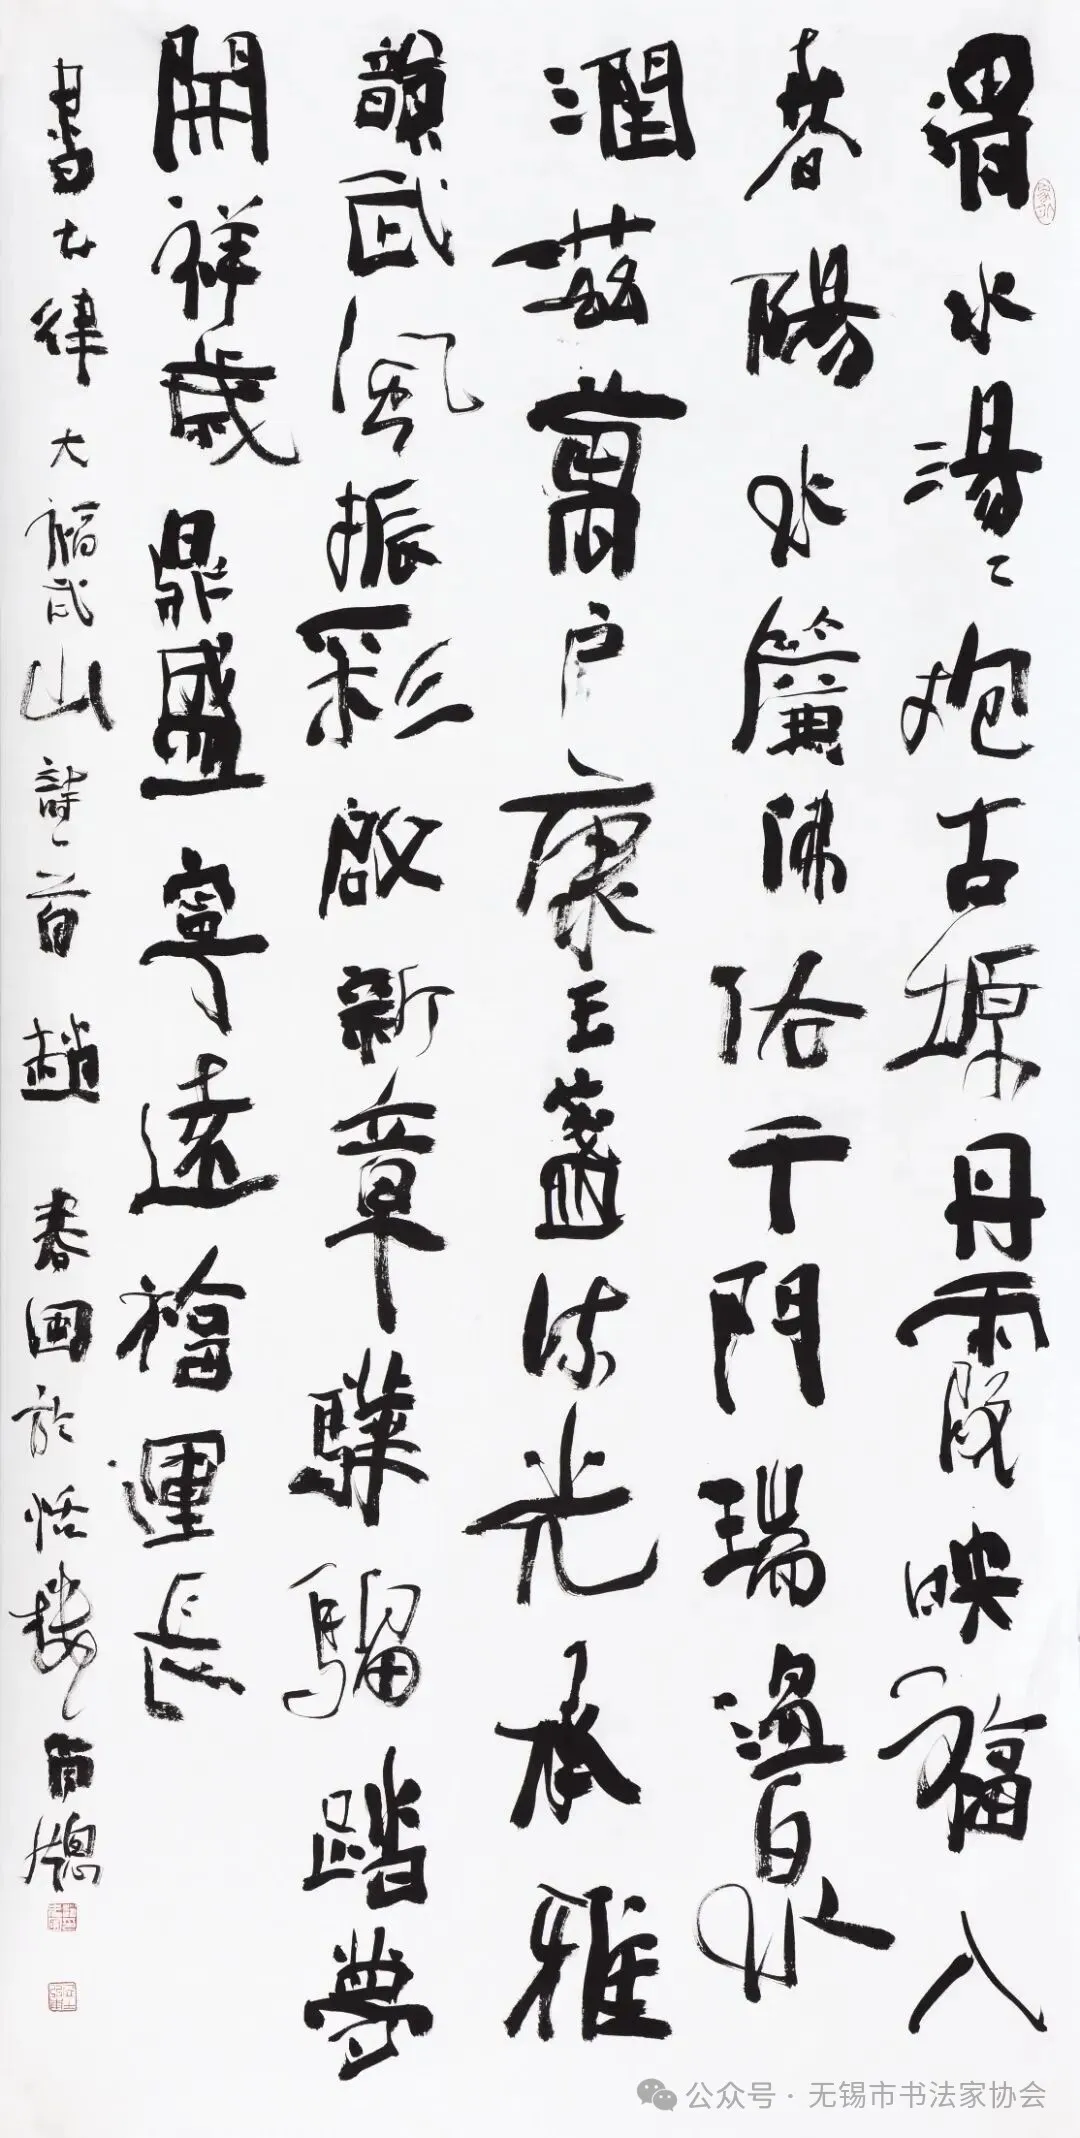 渭水湯〻抱古塬丹霞映福入
春陽水簾佛佑千門瑞溫泉
潤茲萬户康玉盞流光承雅
韻武風振彩啟新章驊騮踏夢
開祥歲鼎盛寧遠福運長
書七律大福武山詩一首 趙春於恬樓南牕
公众号 · 无锡市书法家协会